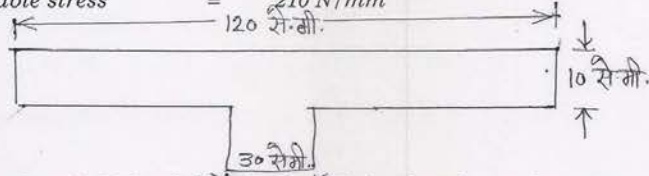 stress = 210 N/mm
120 से.मी.
10 से.मी.
30 सेमी.